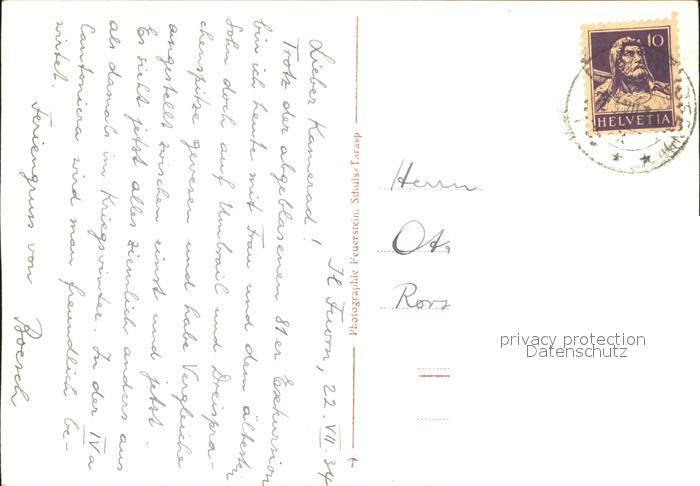 Il Fuorn, 22. VII. 34
Lieber Kamerad!
Trotz der abgeblasenen 81er Exkursion
bin ich heute mit Frau und dem ältesten
Sohn doch auf Umbrail und Dreispra-
chenspitze gewesen und habe Vergleiche
angestellt zwischen einst und jetzt.
Es sieht jetzt alles ziemlich anders aus
als damals im Kriegswinter. In der IVa
Cantoniera wird man freundlich be-
wirtet.
Feriengruss von Boesch
Photographie Feuerstein, Schuls-Tarasp
10
HELVETIA
Herrn
privacy protection
Datenschutz